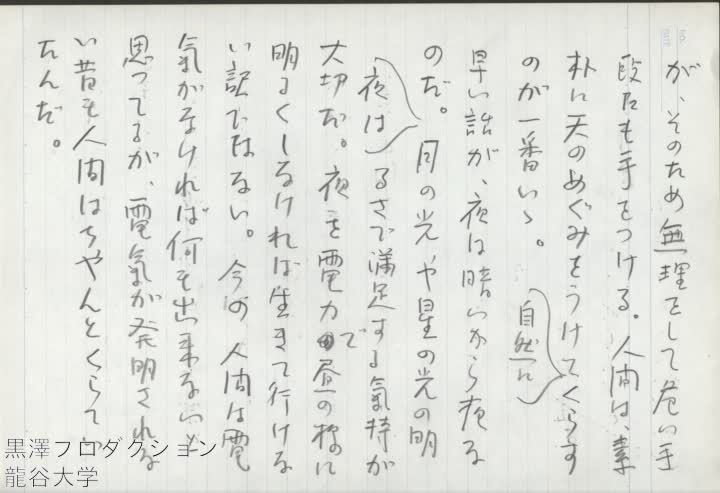 が、そのため無理をして危い手
段にも手をつける。人間は、素
朴に天のめぐみをうけてくらす
自然に
のが一番いゝ。
早い話が、夜は暗いから夜な
のだ。月の光や星の光の明
夜は
るさで満足する氣持が
大切だ。夜を電力で昼の様に
明るくしなければ生きて行けな
い訳ではない。今の人間は電
氣がなければ何も出来ないと
思ってるが、電氣が発明されな
い昔も人間はちやんとくらてゐ
たんだ。
黒澤プロダクション
龍谷大学